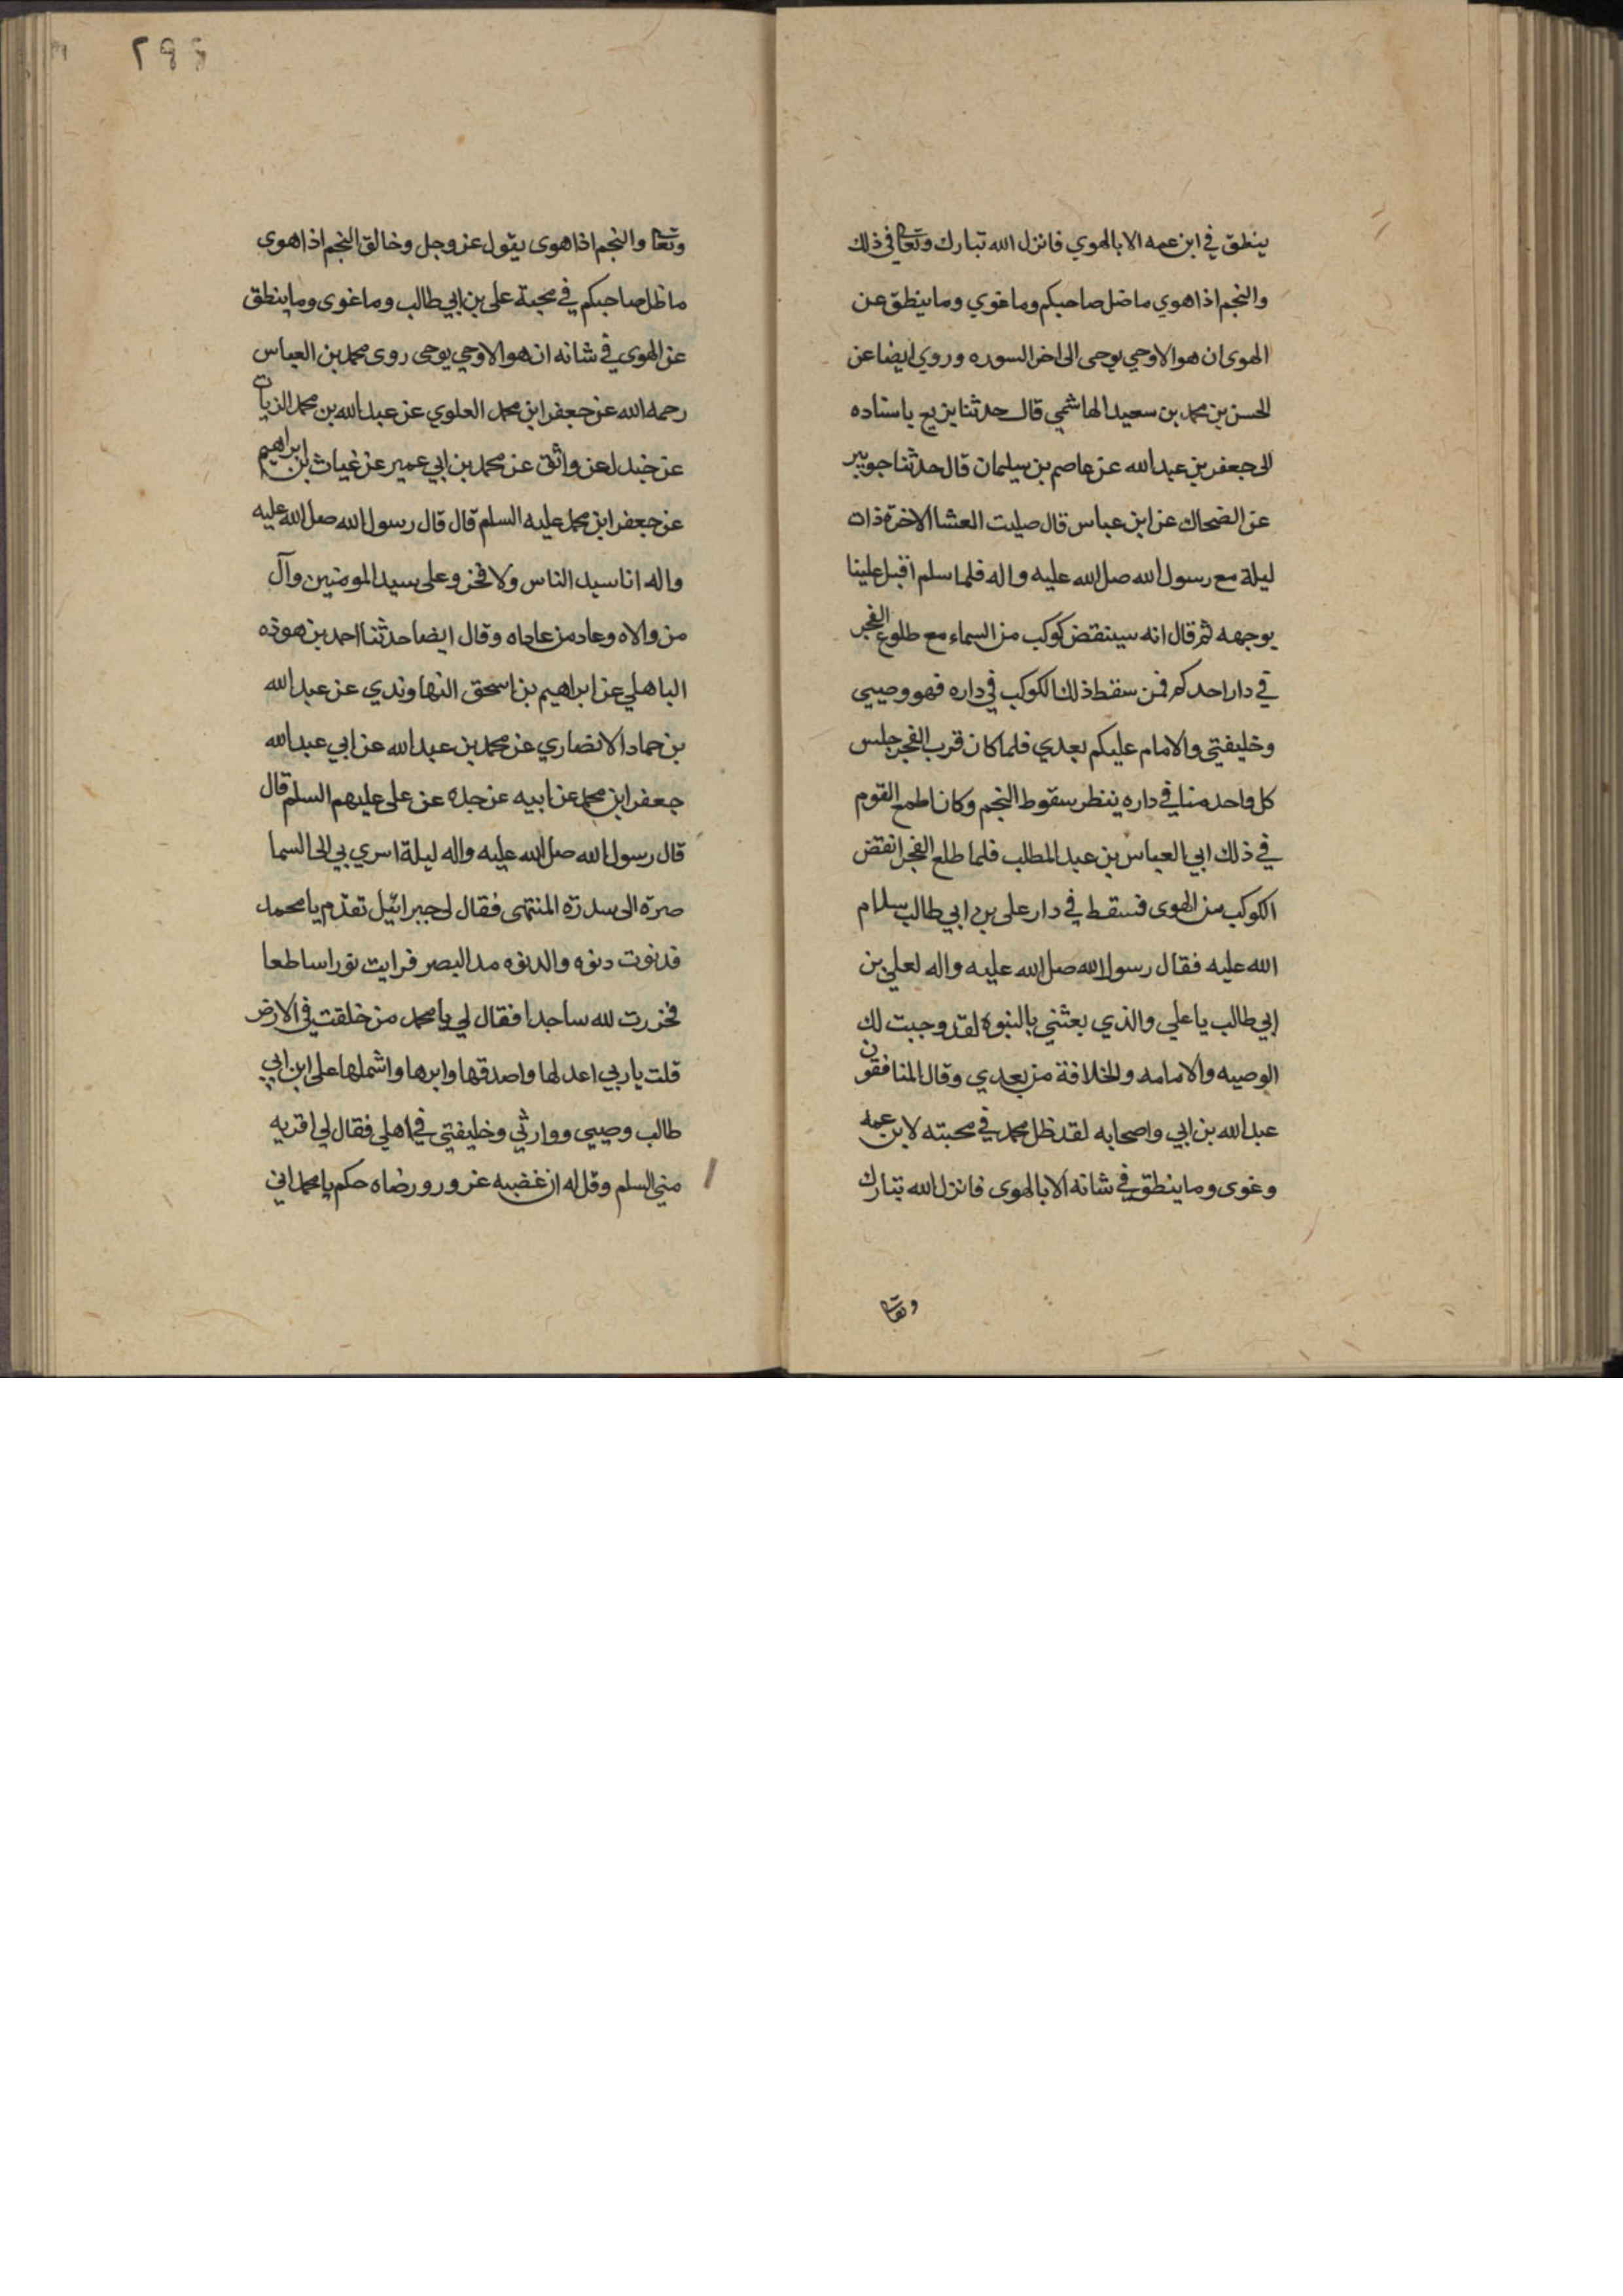 ينطق في ابن عمه الا بالهوي فانزل الله تبارك وتعا في ذلك
والنجم اذا هوي ما ضل صاحبكم وما غوي وما ينطق عن
الهوى ان هو الا وحي يوحى الى اخر السوره وروي ايضا عن
الحسن بن محمد بن سعيد الهاشمي قال حدثنا باسناده
الى جعفر بن عبد الله عن عاصم بن سليمان قال حدثنا جويبر
عن الضحاك عن ابن عباس قال صليت العشا الاخرة ذات
ليلة مع رسول الله صلى الله عليه واله فلما سلم اقبل علينا
بوجهه ثم قال انه سينقض كوكب من السماء مع طلوع الفجر
في دار احدكم فمن سقط ذلك الكوكب في داره فهو وصيي
وخليفتي والامام عليكم بعدي فلما كان قرب الفجر جلس
كل واحد منا في داره ينظر سقوط النجم وكان اطمع القوم
في ذلك ابي العباس بن عبد المطلب فلما طلع الفجر انقض
الكوكب من الهوى فسقط في دار على بن ابي طالب سلام
الله عليه فقال رسول الله صلى الله عليه واله لعلي بن
ابي طالب يا علي والذي بعثني بالنبوة لقد وجبت لك
الوصيه والامامه والخلافة من بعدي وقال المنافقون
عبد الله بن ابي واصحابه لقد ظل محمد في محبته لابن عمه
وغوى وما ينطق في شانه الا بالهوى فانزل الله تبارك
وتعا
٢٩٤
وتعا والنجم اذا هوى يقول عز وجل وخالق النجم اذا هوى
ما ظل صاحبكم في محبة على بن ابي طالب وما غوى وما ينطق
عن الهوى في شانه ان هو الا وحي يوحى روى محمد بن العباس
رحمه الله عن جعفر ابن محمد العلوي عن عبد الله بن محمد الزيات
عن جندل عن واثق عن محمد بن ابي عمير عن غياث بن ابراهيم
عن جعفر ابن محمد عليه السلم قال قال رسول الله صلى الله عليه
واله انا سيد الناس ولا فخر وعلى سيد المومنين وآل
من والاه وعاد من عاداه وقال ايضا حدثنا احمد بن هوذه
الباهلي عن ابراهيم بن اسحق النهاوندي عن عبد الله
بن حماد الانصاري عن محمد بن عبد الله عن ابي عبد الله
جعفر ابن محمد عن ابيه عن جده عن على عليهم السلم قال
قال رسول الله صلى الله عليه واله ليلة اسري بي الى السما
صرة الى سدرة المنتهى فقال لى جبرائيل تقدم يا محمد
فدنوت دنوه والدنوه مد البصر فرايت نورا ساطعا
فخررت لله ساجدا فقال لي يا محمد من خلقت في الارض
قلت يا ربي اعدلها واصدقها وابرها واشملها على ابن ابي
طالب وصيي ووارثي وخليفتي في اهلي فقال لي اقريه
مني السلم وقل له ان غضبه عز ورو رضاه حكم يا محمد اني